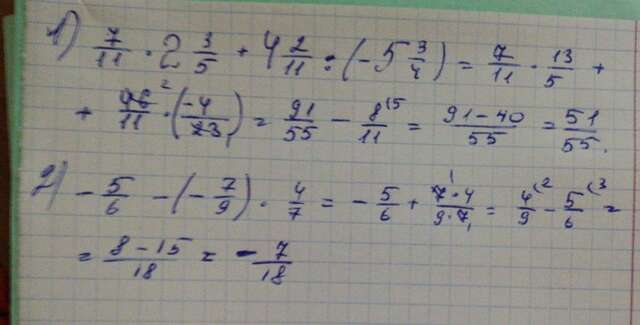 1) 7/11 · 2 3/5 + 4 2/11 : (-5 3/4) = 7/11 · 13/5 +
+ 46²/11 · (-4/23₁) = 91/55 - 8⁽⁵/11 = 91-40/55 = 51/55.
2) - 5/6 - (- 7/9) · 4/7 = - 5/6 + 7¹·4/9·7₁ = 4⁽²/9 - 5⁽³/6 =
= 8-15/18 = - 7/18